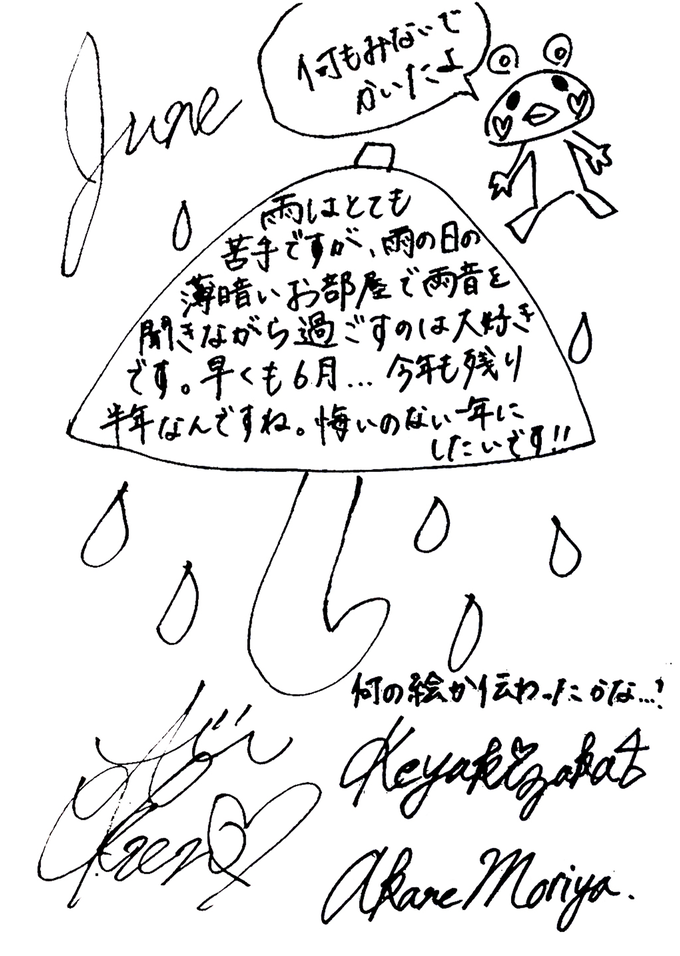 June
何もみないで
かいたよ
雨はとても
苦手ですが、雨の日の
薄暗いお部屋で雨音を
聞きながら過ごすのは大好き
です。早くも6月...今年も残り
半年なんですね。悔いのない一年に
したいです!!
何の絵か伝わったかな...!
Keyakizaka
Akane Moriya.